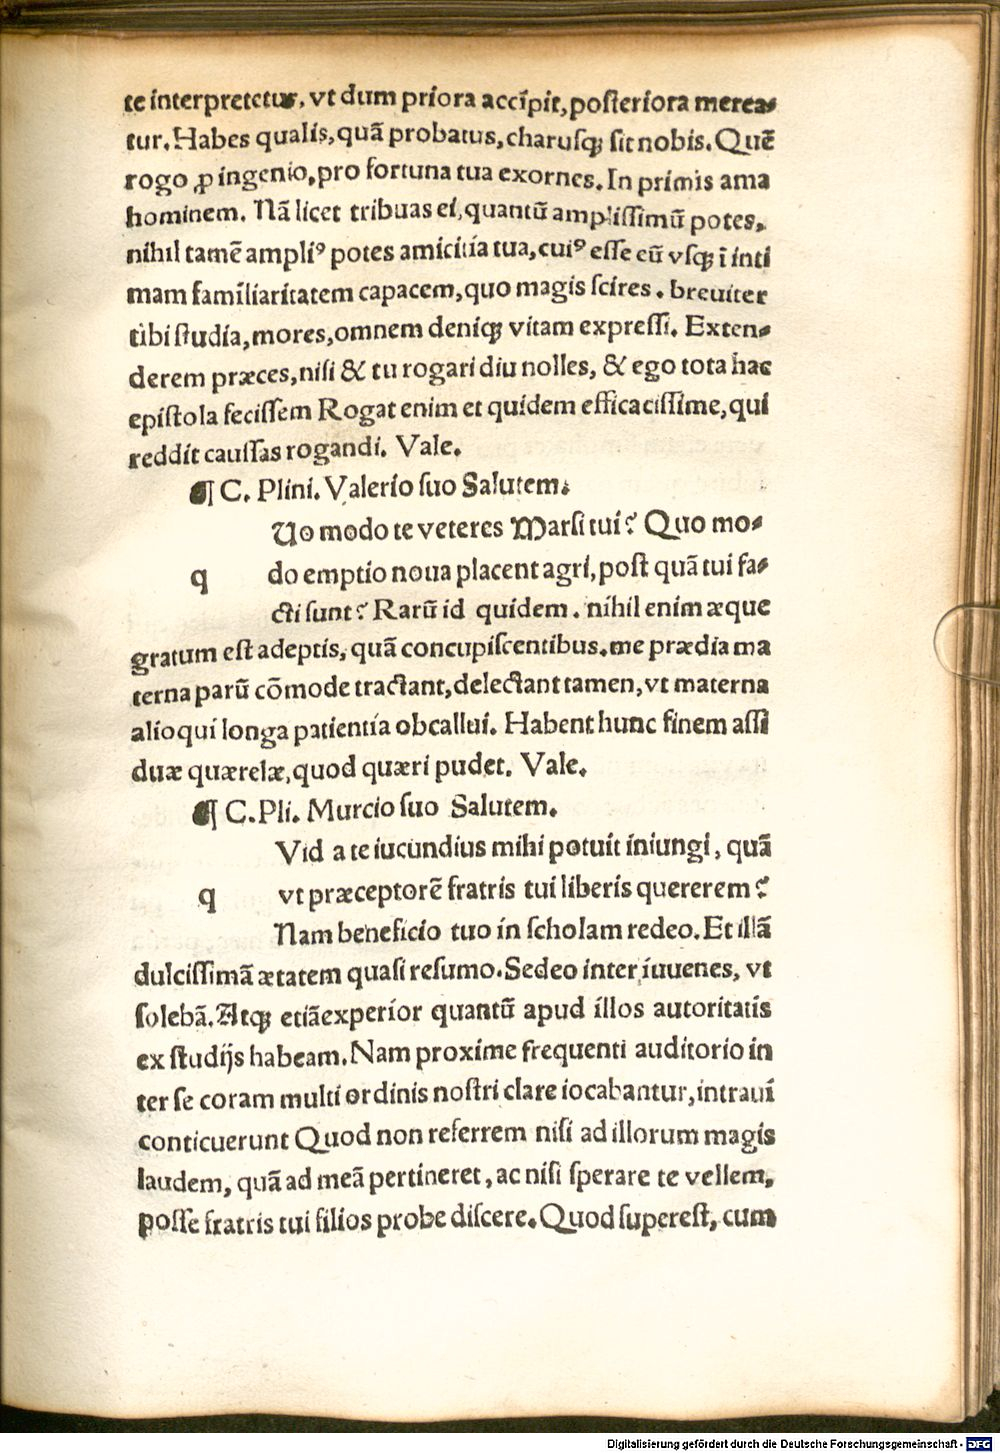 te interpretetur, vt dum priora acci̅pit, posteriora merea⸗
tur. Habes qualis, quã probatus, charusq; sit nobis. Que̅
rogo ꝓ ingenio, pro fortuna tua exornes. In primis ama
hominem. Nã licet tribuas ei, quantu̅ amplissimu̅ potes,
nihil tame̅ ampliꝰ potes amicitia tua, cuiꝰ esse eu̅ vsq; i̅ inti
mam familiaritatem capacem, quo magis scires. breuiter
tibi studia, mores, omnem deniq; vitam expressi. Exten⸗
derem præces, nisi & tu rogari diu nolles, & ego tota hac
epistola fecissem Rogat enim et quidem efficacissime, qui
reddit caussas rogandi. Vale.
¶ C. Plini. Valerio suo Salutem.
Uo modo te veteres Marsi tui? Quo mo⸗
q do emptio noua placent agri, post quã tui fa⸗
cti sunt? Raru̅ id quidem. nihil enim æque
gratum est adeptis, quã concupiscentibus. me prædia ma
terna paru̅ co̅mode tractant, delectant tamen, vt materna
alioqui longa patientia obcallui. Habent hunc finem assi
duæ quærelæ, quod quæri pudet. Vale.
¶ C. Pli. Murcio suo Salutem.
Vid a te iucundius mihi potuit iniungi, quã
q vt præceptore̅ fratris tui liberis quererem?
Nam beneficio tuo in scholam redeo. Et illã
dulcissimã ætatem quasi resumo. Sedeo inter iuuenes, vt
solebã. Atq; etiãexperior quantu̅ apud illos autoritatis
ex studijs habeam. Nam proxime frequenti auditorio in
ter se coram multi ordinis nostri clare iocabantur, intraui
conticuerunt Quod non referrem nisi ad illorum magis
laudem, quã ad meã pertineret, ac nisi sperare te vellem,
posse fratris tui filios probe discere. Quod superest, cum
Digitalisierung gefördert durch die Deutsche Forschungsgemeinschaft - DFG